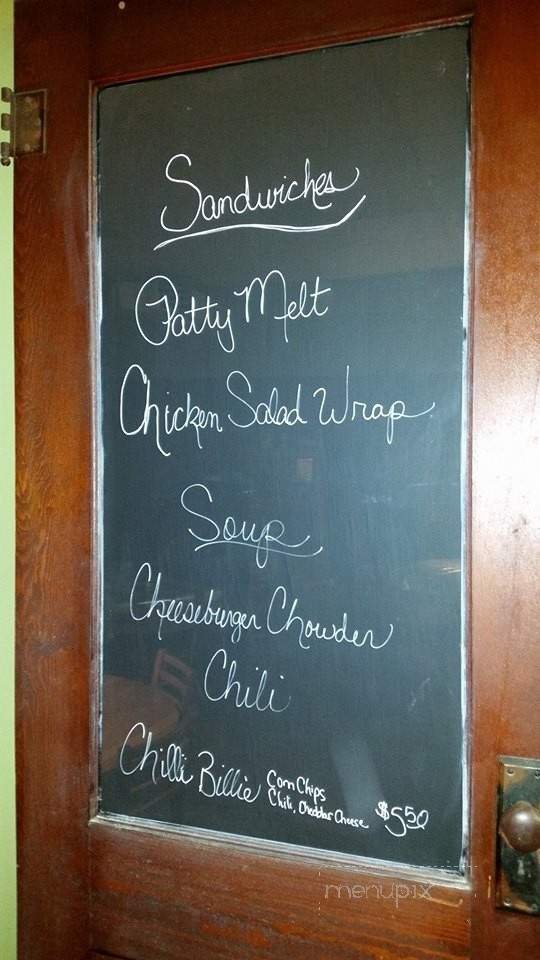 Sandwiches
Patty Melt
Chicken Salad Wrap
Soup
Cheeseburger Chowder
Chili
Chilli Billie Corn Chips
Chili, Cheddar Cheese $5.50
menupix